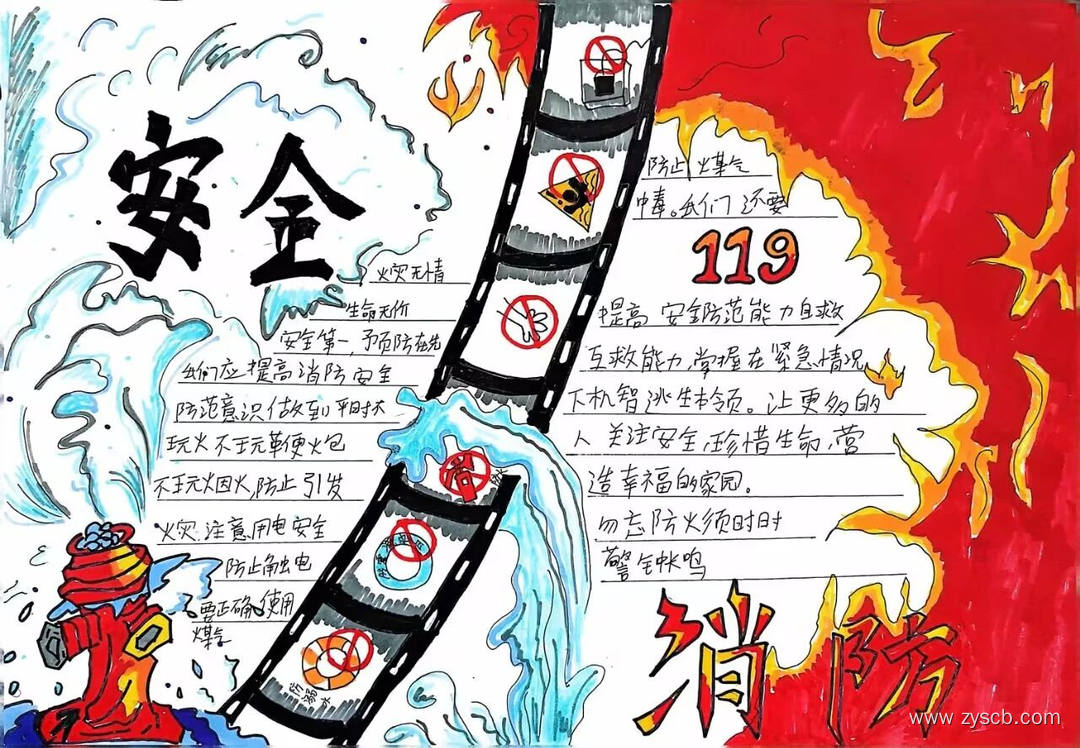 安全
火灾无情
生命无价
安全第一,予页防在先
我们应提高消防安全
防范意识做到平时不
玩火不玩鞭炮
不玩烟火,防止引发
火灾.注意用电安全
防止触电
要正确使用
煤气
防溺水
防止煤气
中毒。我们还要
119
提高安全防范能力自救
互救能力,掌握在紧急情况
下机智逃生本领。让更多的
人关注安全,珍惜生命,营
造幸福的家园。
勿忘防火须时时
警钟长鸣
消防
www.zyscb.com